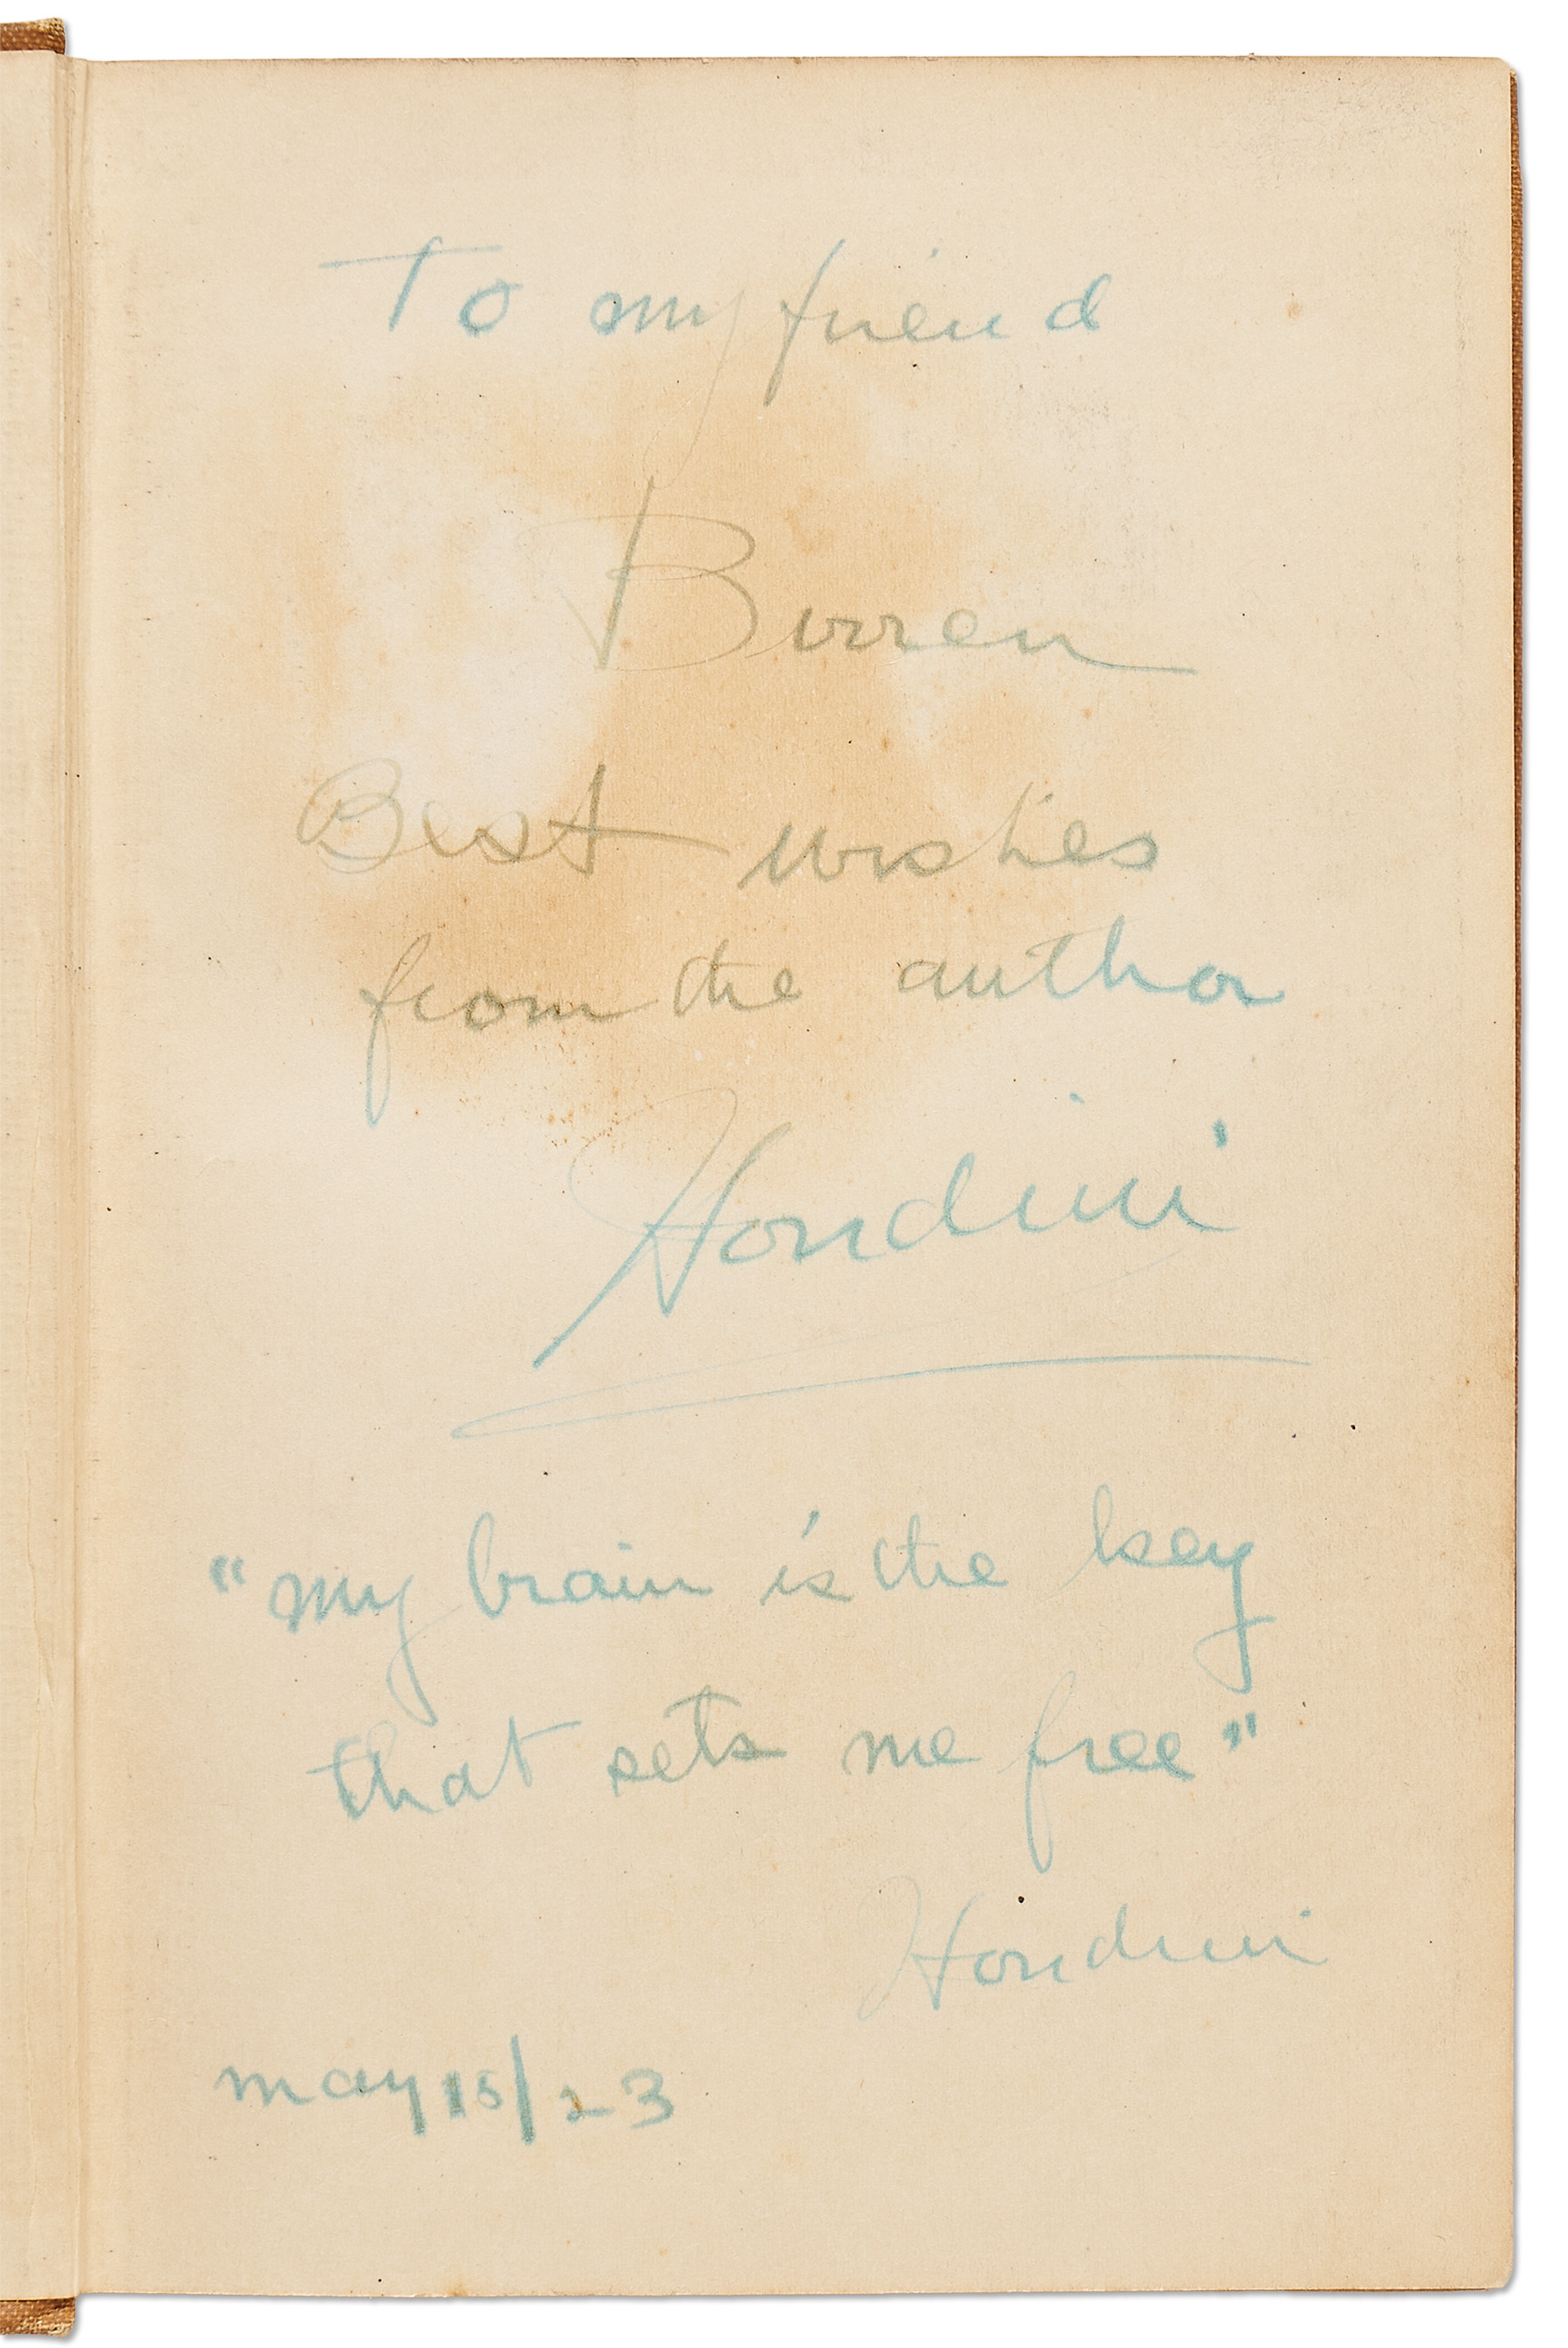 To my friend
Birren
Best wishes
from the author
Houdini
"my brain is the key
that sets me free"
Houdini
may 15/23